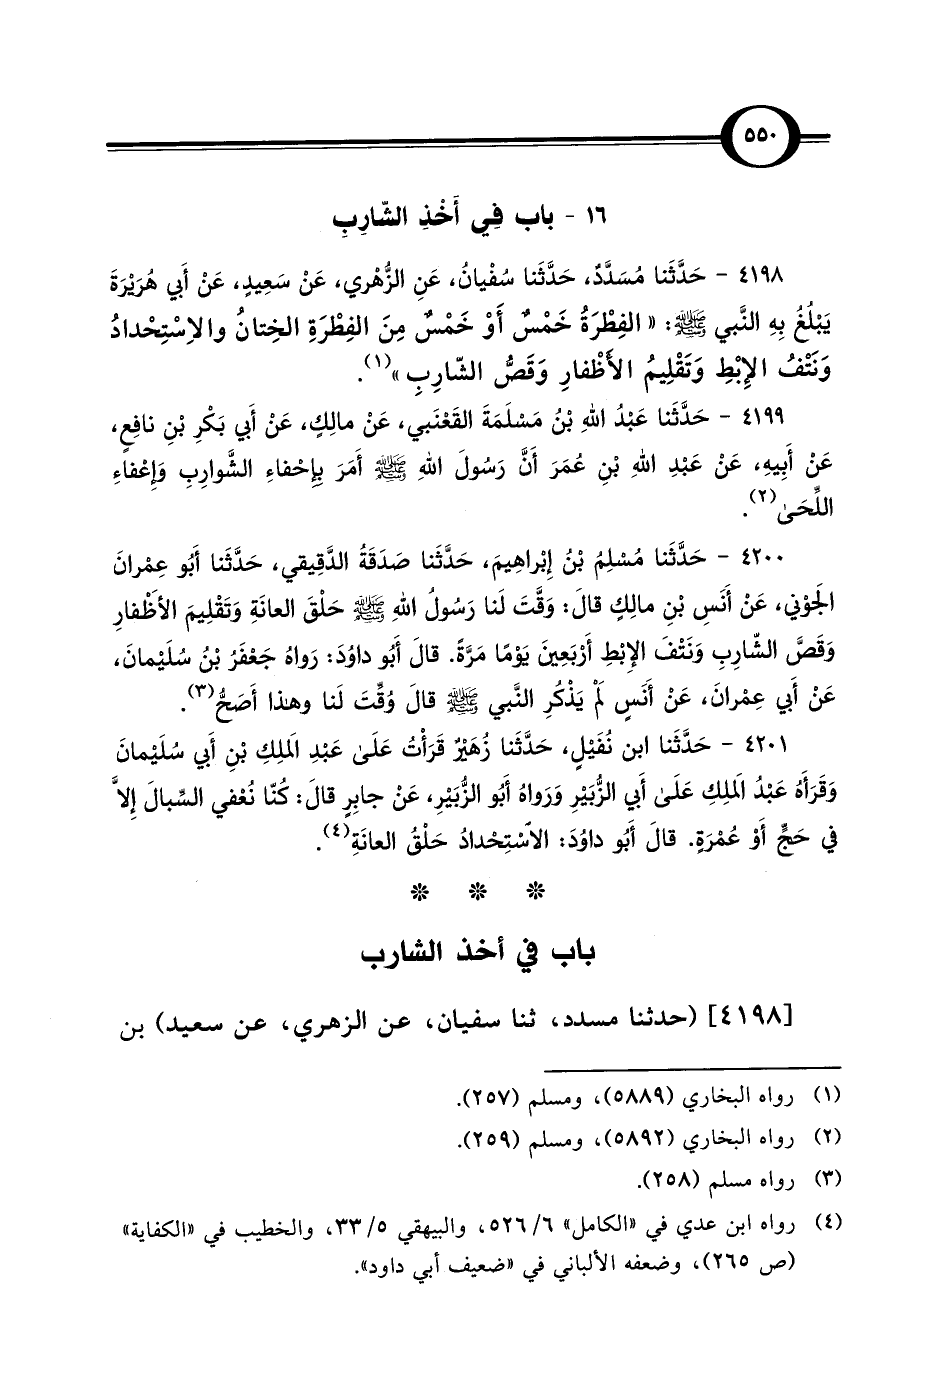 ٥٥٠
١٦ - باب فِي أَخْذِ الشّارِبِ
٤١٩٨ - حَدَّثَنا مُسَدَّدٌ، حَدَّثَنا سُفْيانُ، عَنِ الزُّهْري، عَنْ سَعِيدٍ، عَنْ أَبي هُرَيْرَةَ
يَبْلُغُ بِهِ النَّبي ﷺ: « الفِطْرَةُ خَمْسٌ أَوْ خَمْسٌ مِنَ الفِطْرَةِ الخِتانُ والاِسْتِحْدادُ
وَنَتْفُ الإِبْطِ وَتَقْلِيمُ الأَظْفارِ وَقَصُّ الشّارِبِ »(١).
٤١٩٩ - حَدَّثَنا عَبْدُ اللهِ بْنُ مَسْلَمَةَ القَعْنَبي، عَنْ مالِكٍ، عَنْ أَبي بَكْرِ بْنِ نافِعٍ،
عَنْ أَبِيهِ، عَنْ عَبْدِ اللهِ بْنِ عُمَرَ أَنَّ رَسُولَ اللهِ ﷺ أَمَرَ بِإِحْفاءِ الشَّوارِبِ وَإِعْفاءِ
اللِّحَىٰ(٢).
٤٢٠٠ - حَدَّثَنا مُسْلِمُ بْنُ إِبْراهِيمَ، حَدَّثَنا صَدَقَةُ الدَّقِيقي، حَدَّثَنا أَبُو عِمْرانَ
الجَوْني، عَنْ أَنَسِ بْنِ مالِكٍ قالَ: وَقَّتَ لَنا رَسُولُ اللهِ ﷺ حَلْقَ العانَةِ وَتَقْلِيمَ الأَظْفارِ
وَقَصَّ الشّارِبِ وَنَتْفَ الإِبْطِ أَرْبَعِينَ يَوْمًا مَرَّةً. قالَ أَبُو داوُدَ: رَواهُ جَعْفَرُ بْنُ سُلَيْمانَ،
عَنْ أَبي عِمْرانَ، عَنْ أَنَسٍ لَمْ يَذْكُرِ النَّبي ﷺ قالَ وُقِّتَ لَنا وهذا أَصَحُّ(٣).
٤٢٠١ - حَدَّثَنا ابن نُفَيْلٍ، حَدَّثَنا زُهَيْرٌ قَرَأْتُ عَلَىٰ عَبْدِ المَلِكِ بْنِ أَبي سُلَيْمانَ
وَقَرَأَهُ عَبْدُ المَلِكِ عَلَىٰ أَبي الزُّبَيْرِ وَرَواهُ أَبُو الزُّبَيْرِ، عَنْ جابِرٍ قالَ: كُنّا نُعْفي السِّبالَ إِلاَّ
في حَجٍّ أَوْ عُمْرَةٍ. قالَ أَبُو داوُدَ: الاَسْتِحْدادُ حَلْقُ العانَةِ(٤).
* * *
باب في أخذ الشارب
[٤١٩٨] (حدثنا مسدد، ثنا سفيان، عن الزهري، عن سعيد) بن
(١) رواه البخاري (٥٨٨٩)، ومسلم (٢٥٧).
(٢) رواه البخاري (٥٨٩٢)، ومسلم (٢٥٩).
(٣) رواه مسلم (٢٥٨).
(٤) رواه ابن عدي في «الكامل» ٦/ ٥٢٦، والبيهقي ٥/ ٣٣، والخطيب في «الكفاية»
(ص ٢٦٥)، وضعفه الألباني في «ضعيف أبي داود».